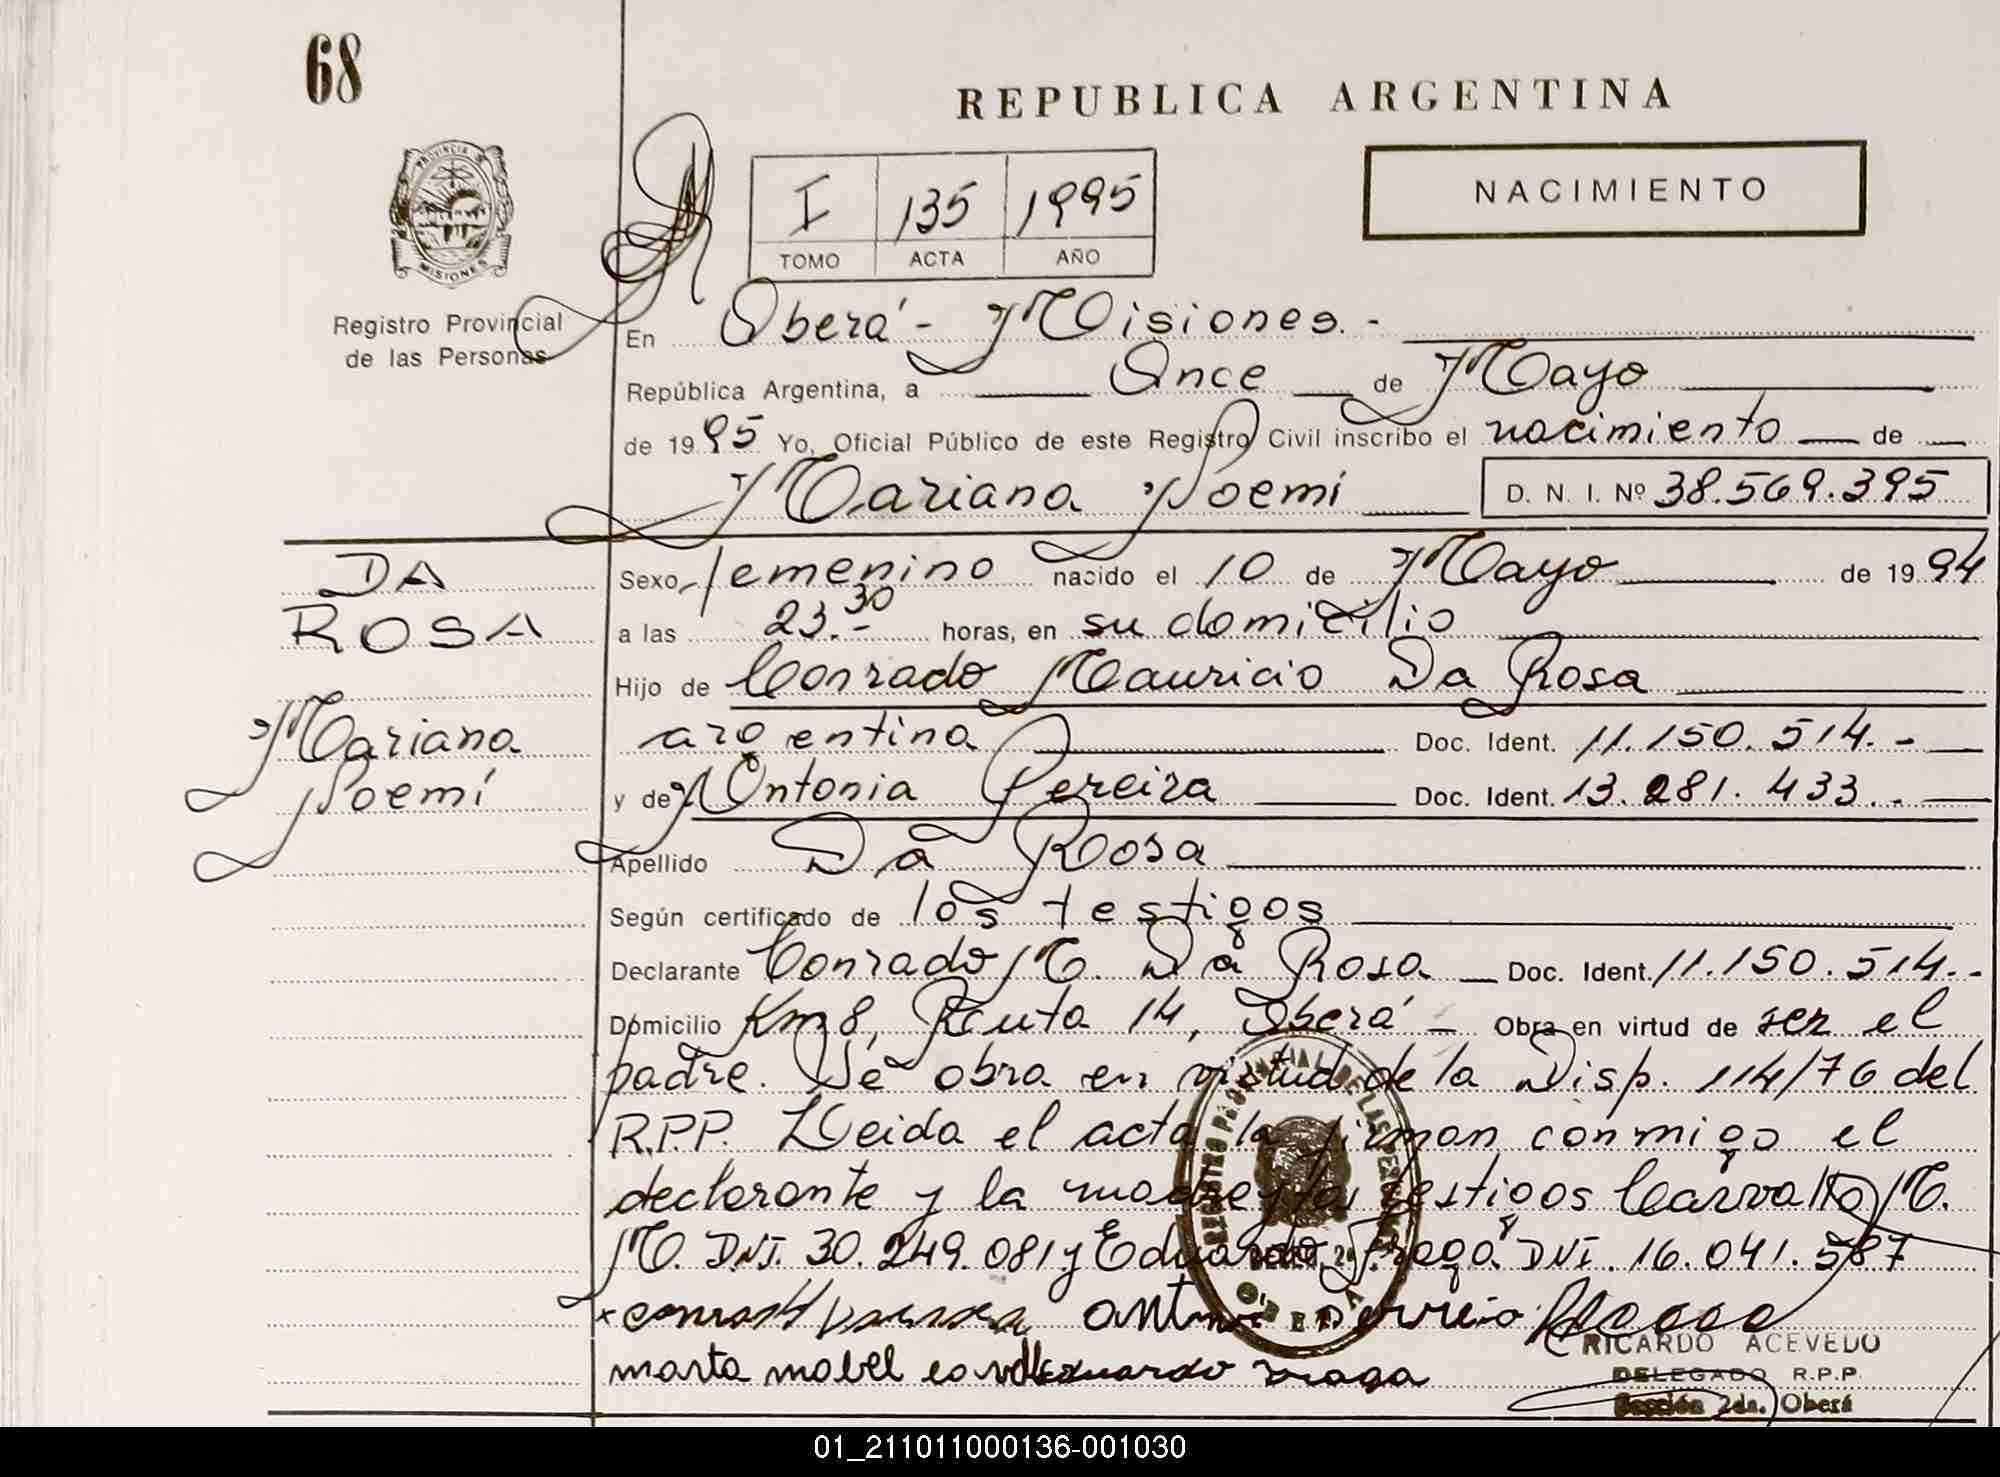 68
REPUBLICA ARGENTINA
PROVINCIA D
MISIONES
Registro Provincial
de las Personas
I 135 1995
TOMO ACTA AÑO
NACIMIENTO
En Oberá - Misiones. -
República Argentina, a Once de Mayo
de 1995 Yo, Oficial Público de este Registro Civil inscribo el nacimiento de
Mariana Noemí D. N. I. Nº 38.569.395
DA
ROSA
Mariana
Noemí
Sexo femenino nacido el 10 de Mayo de 1994
a las 23.30 horas, en su domicilio
Hijo de Conrado Mauricio Da Rosa
argentina Doc. Ident. 11.150.514.-
y de Antonia Pereira Doc. Ident. 13.281.433.-
Apellido Da Rosa
Según certificado de los testigos
Declarante Conrado M. Da Rosa Doc. Ident. 11.150.514.-
Domicilio Km 8, Ruta 14, Oberá - Obra en virtud de ser el
padre. Se obra en virtud de la Disp. 114/76 del
R.P.P. Leida el acta la firman conmigo el
declarante y la madre y los testigos Carvallo M.
M. DNI. 30.249.081 y Eduardo Fraga DNI. 16.041.587
REGISTRO PROVINCIAL DE LAS PERSONAS
OBERA
marta mabel Eduardo Fraga
RICARDO ACEVEDO
DELEGADO R.P.P.
Sección 2da. Oberá
01_211011000136-001030